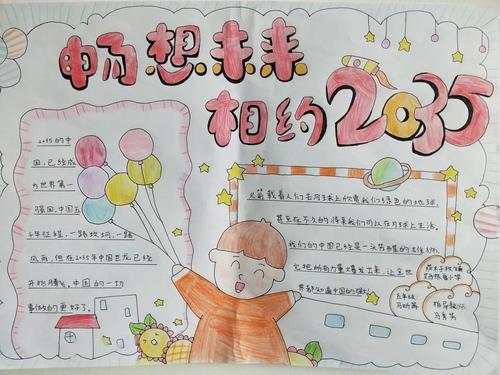 畅想未来
相约2035
2035的中
国,已经成
为世界第一
强国,中国五
千年征程,一路坎坷,一路
风雨,但在2035年中国巨龙已经
开始腾飞,中国的一切
事物的更好了。
火箭载着人们去月球上欣赏我们绿色的地球,
甚至在不久的将来我们可以在月球上生活。
我们的中国已经是一头苏醒的雄狮,
它把所有力量爆发出来,让全世
界都知道中国的强大
五年级
指导教师